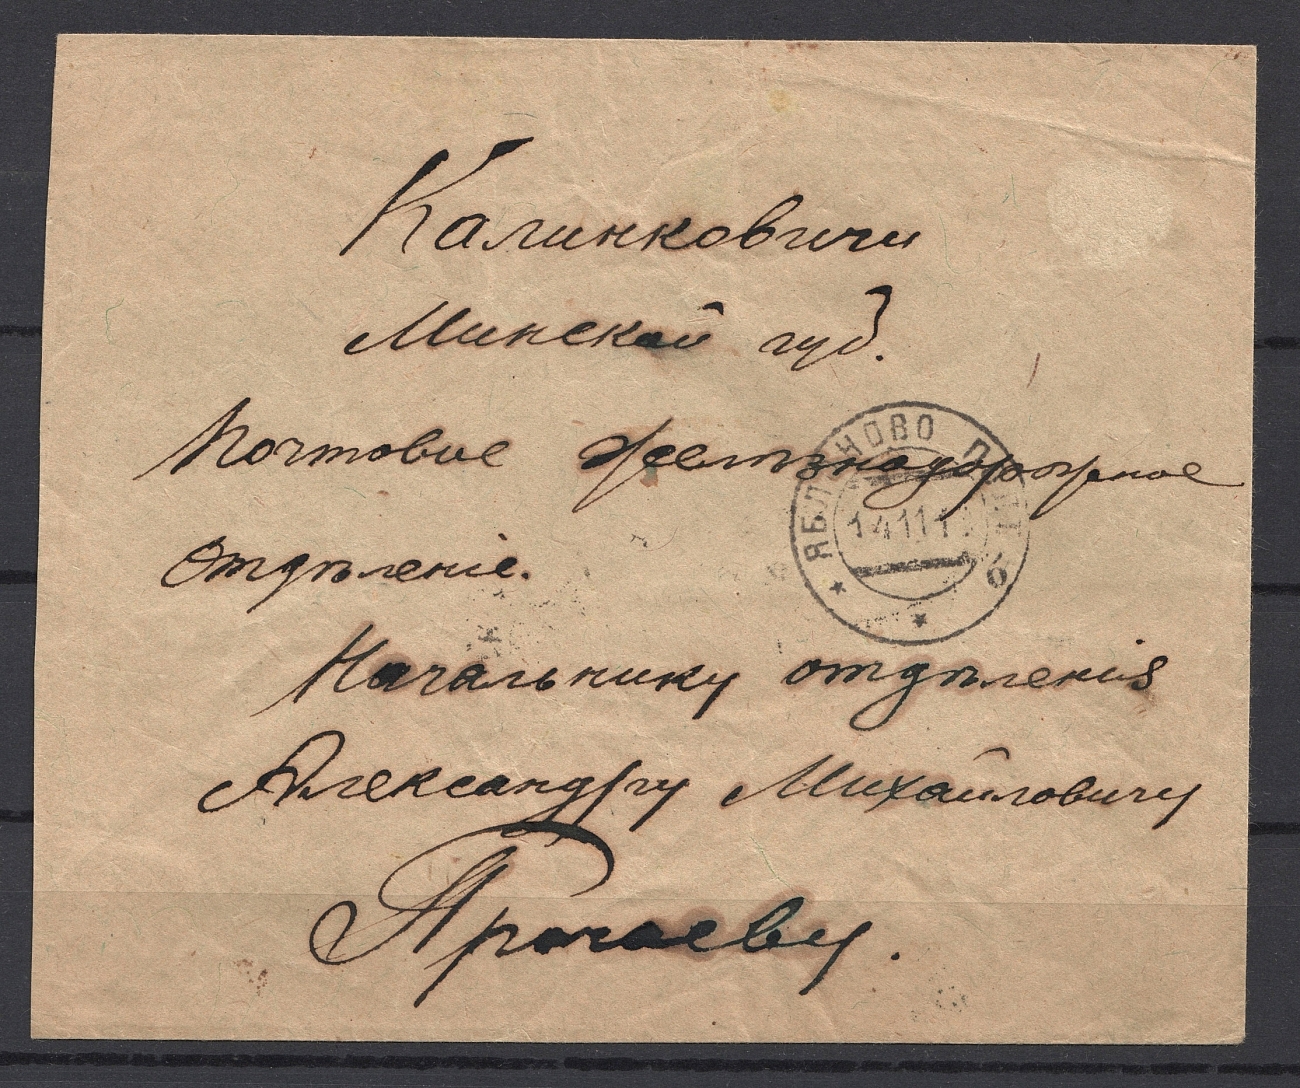 Калинковичи
Минской губ.
Почтовое желѣзнодорожное
отдѣленіе.
Начальнику отдѣленія
Александру Михайловичу
ЯБЛ НОВО
14 11 1
б